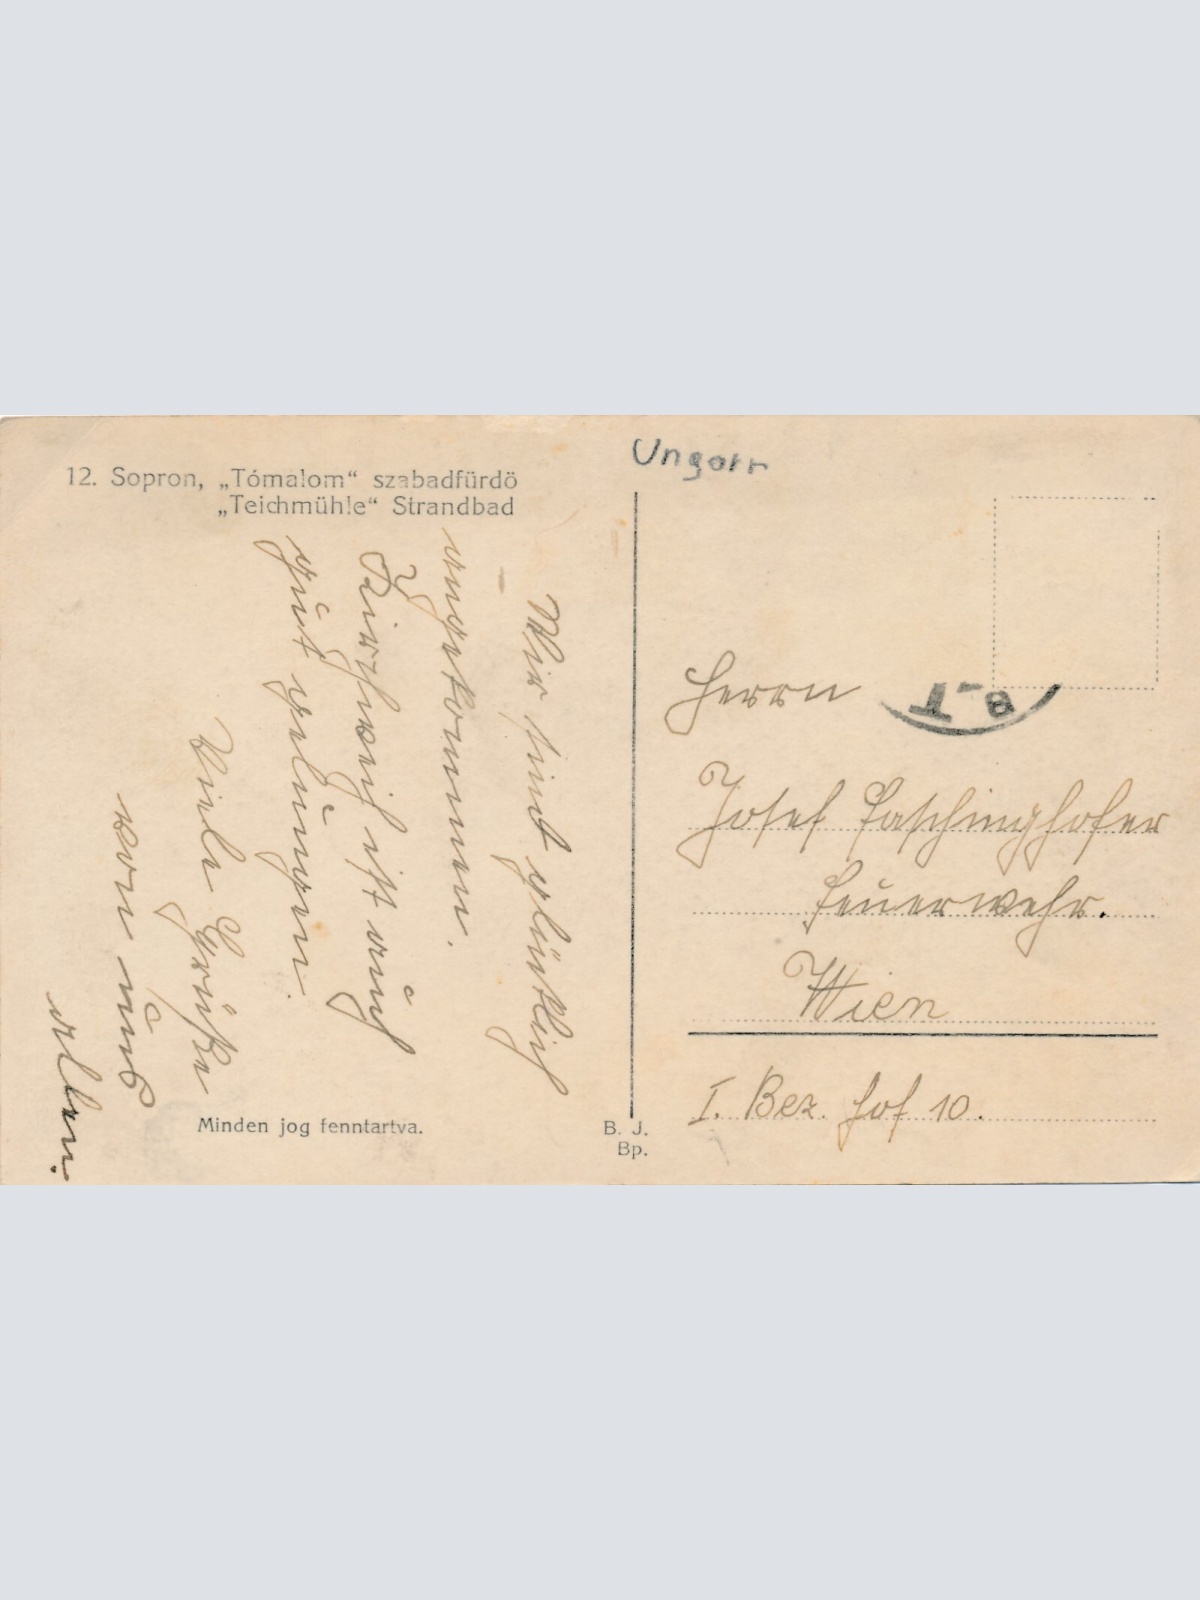 12. Sopron, „Tómalom“ szabadfürdö
„Teichmühle“ Strandbad
Wir sind glücklich
angekommen.
ist auch
gut gelungen.
Viele Grüße
von uns
allen.
Minden jog fenntartva.
B. J.
Bp.
Ungarn
Herrn
Josef Faschinghofer
Feuerwehr.
Wien
I. Bez. Hof 10.